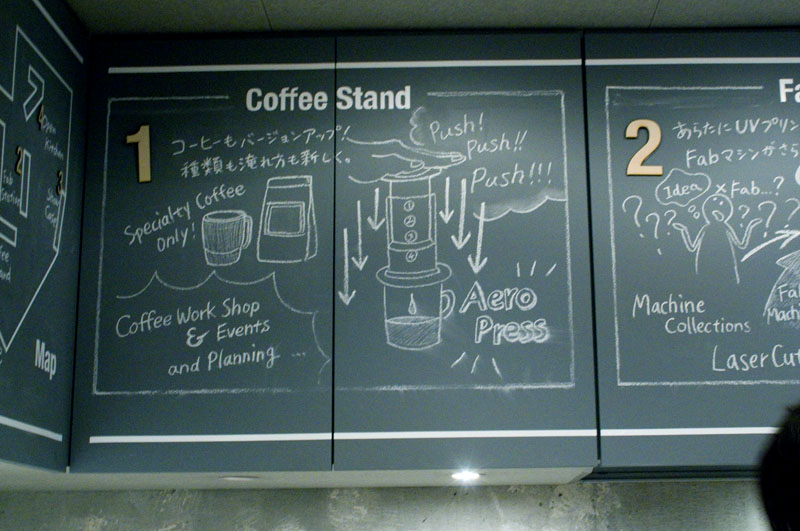 7
4
Open
Kitchen
2
3
Fab
Map
Coffee Stand
1
コーヒーもバージョンアップ!
種類も淹れ方も新しく。
Specialty Coffee
Only!
Coffee Work Shop
& Events
and Planning ...
Push!
Push!!
Push!!!
1
2
3
4
Aero
Press
Fa
2
あらたにUVプリン
Fabマシンがさら
Idea × Fab...?
? ? ? ? ? ?
Machine
Collections
Fab
Machine
LaserCut